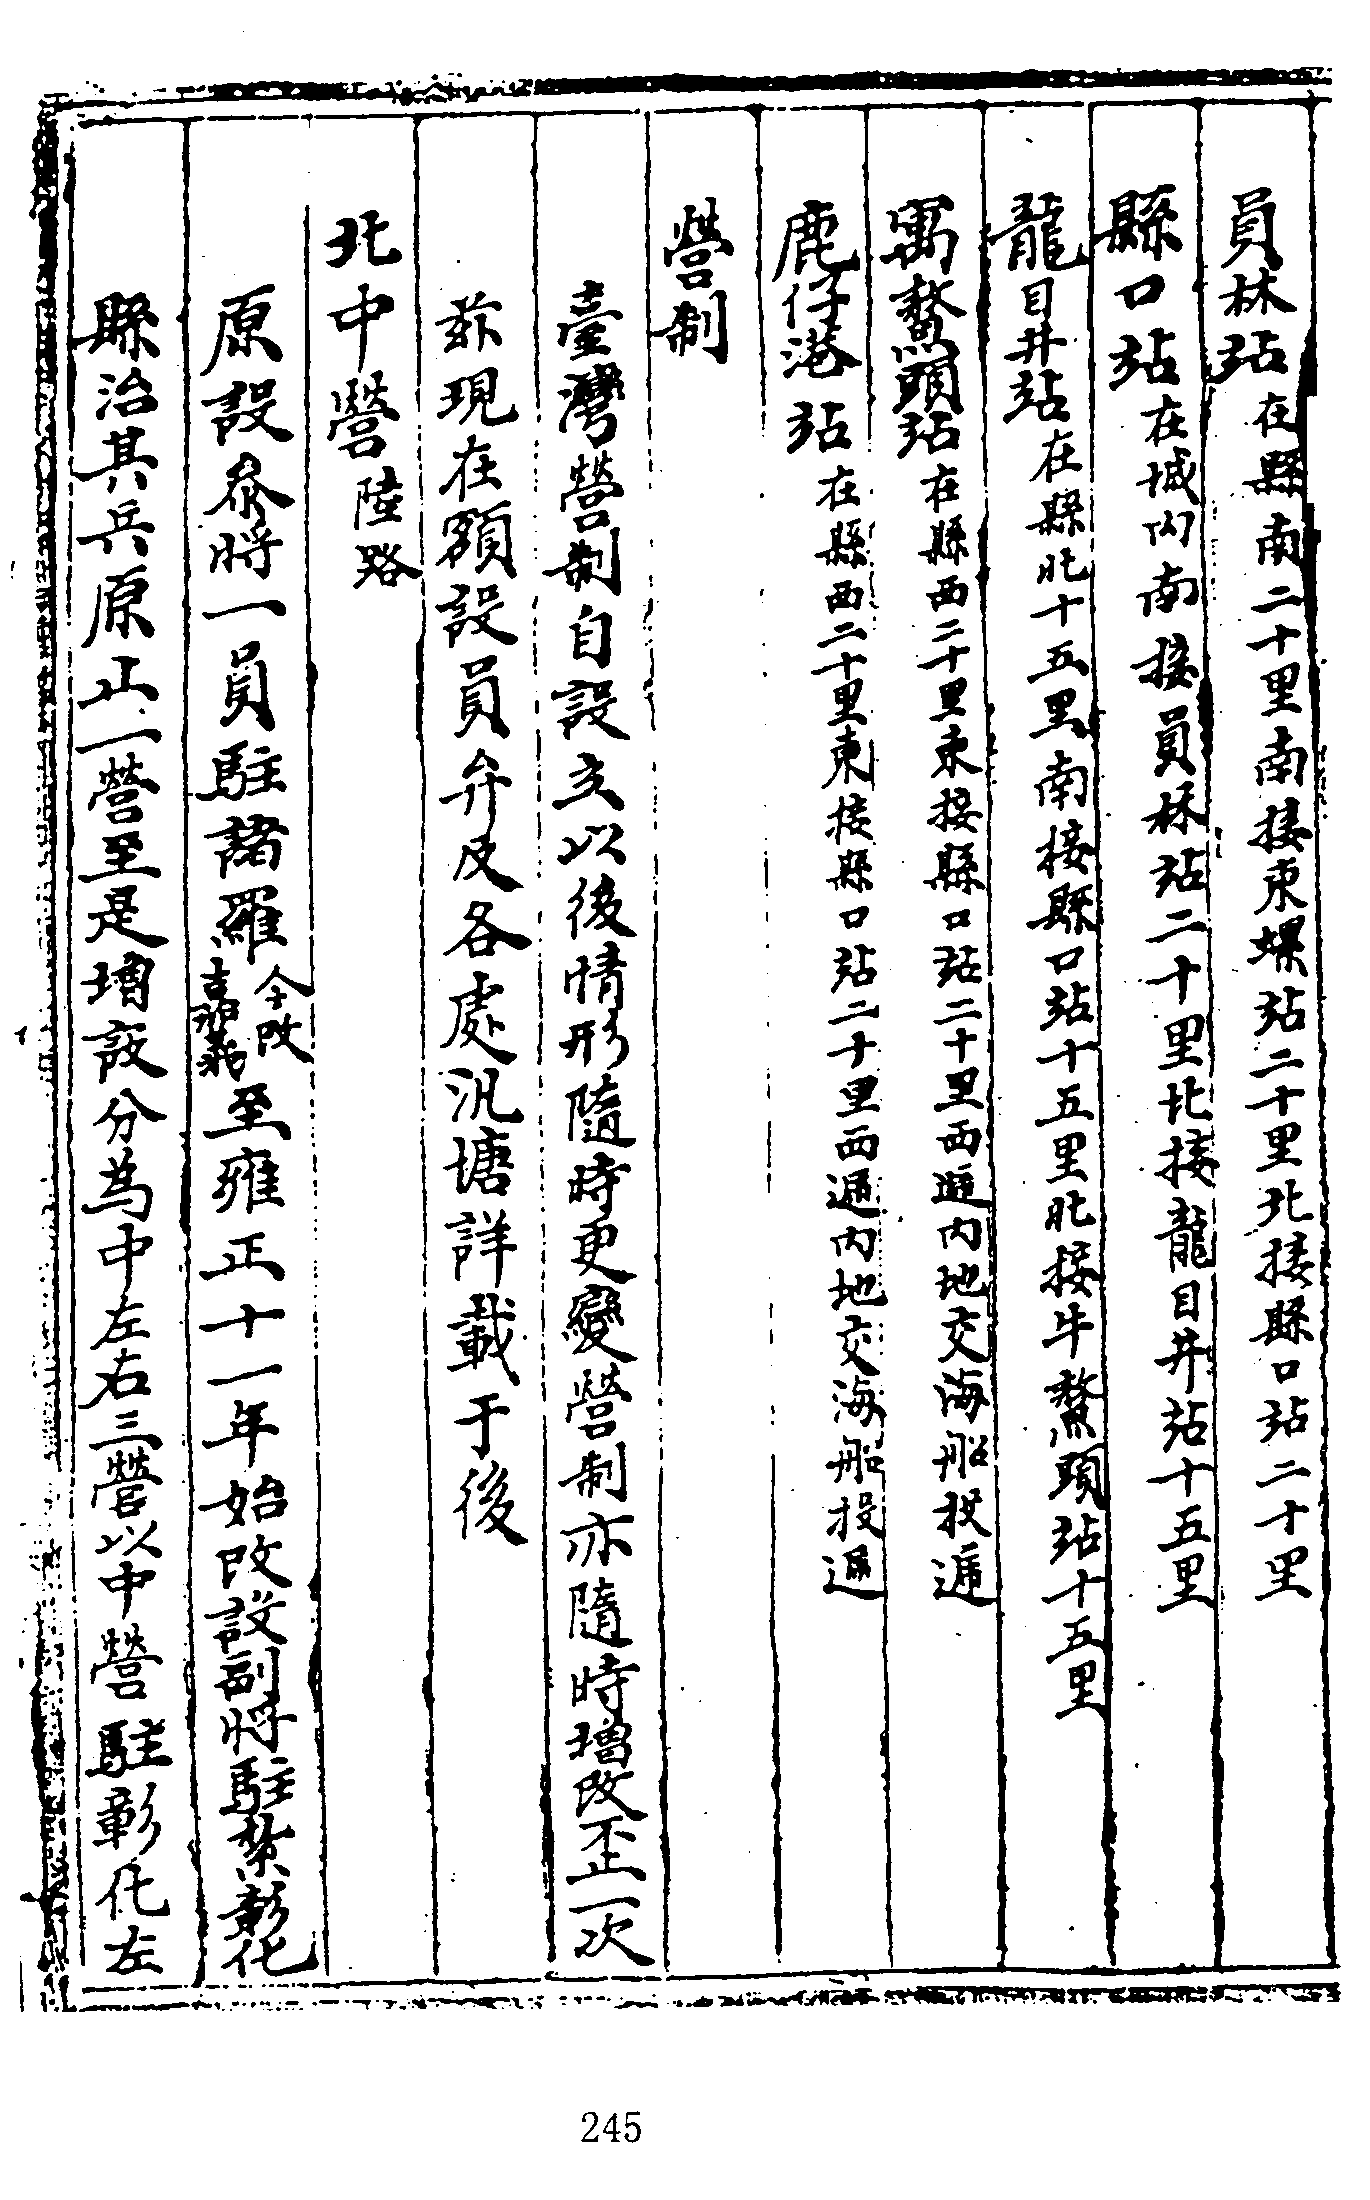 員林站在縣南二十里南接東螺站二十里北接縣口站二十里
縣口站在城內南接員林站二十里北接龍目井站十五里
龍目井站在縣北十五里南接縣口站十五里北接牛鰲頭站十五里
寓鰲頭站在縣西二十里東接縣口站二十里西通內地交海船投遞
鹿仔港站在縣西二十里東接縣口站二十里西通內地交海船投遞
營制
臺灣營制自設立以後情形隨時更變營制亦隨時增改歪一次
茲現在額設員弁及各處汛塘詳載于後
北中營陸路
原設叅將一員駐諸羅今改嘉義至雍正十一年始改設副將駐紮彰化
縣治其兵原止一營至是增設分為中左右三營以中營駐彰化左
245